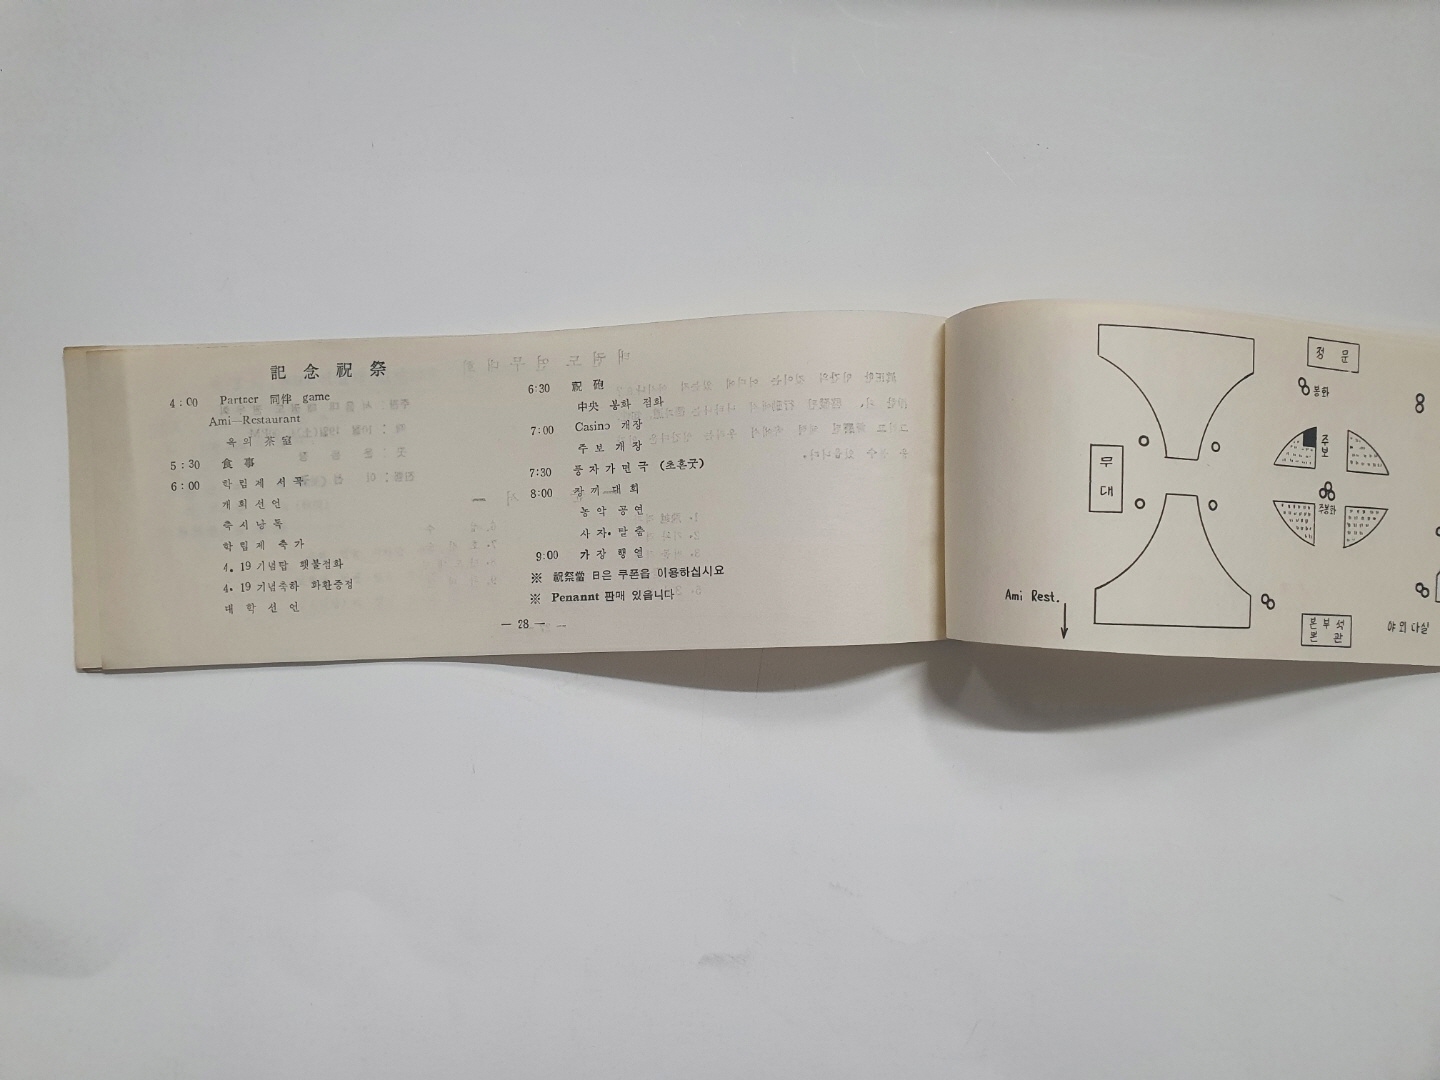 記念祝祭
4:00 Partner 同伴 game
Ami—Restaurant
옥의 茶室
5:30 食事
6:00 학림제 서곡
개회선언
축시낭독
학림제 축가
4.19 기념탑 횃불점화
4.19 기념축하 화환증정
대학선언
6:30 祝砲
中央 봉화 점화
7:00 Casino 개장
주보 개장
7:30 풍자가면극 (초혼굿)
8:00 장끼대회
농악 공연
사자·탈춤
9:00 가장행열
※ 祝祭當日은 쿠폰을 이용하십시요
※ Penannt 판매 있읍니다
— 28 —
정문
봉화
주보
무대
주봉화
Ami Rest.
본부석
본관
야외다실